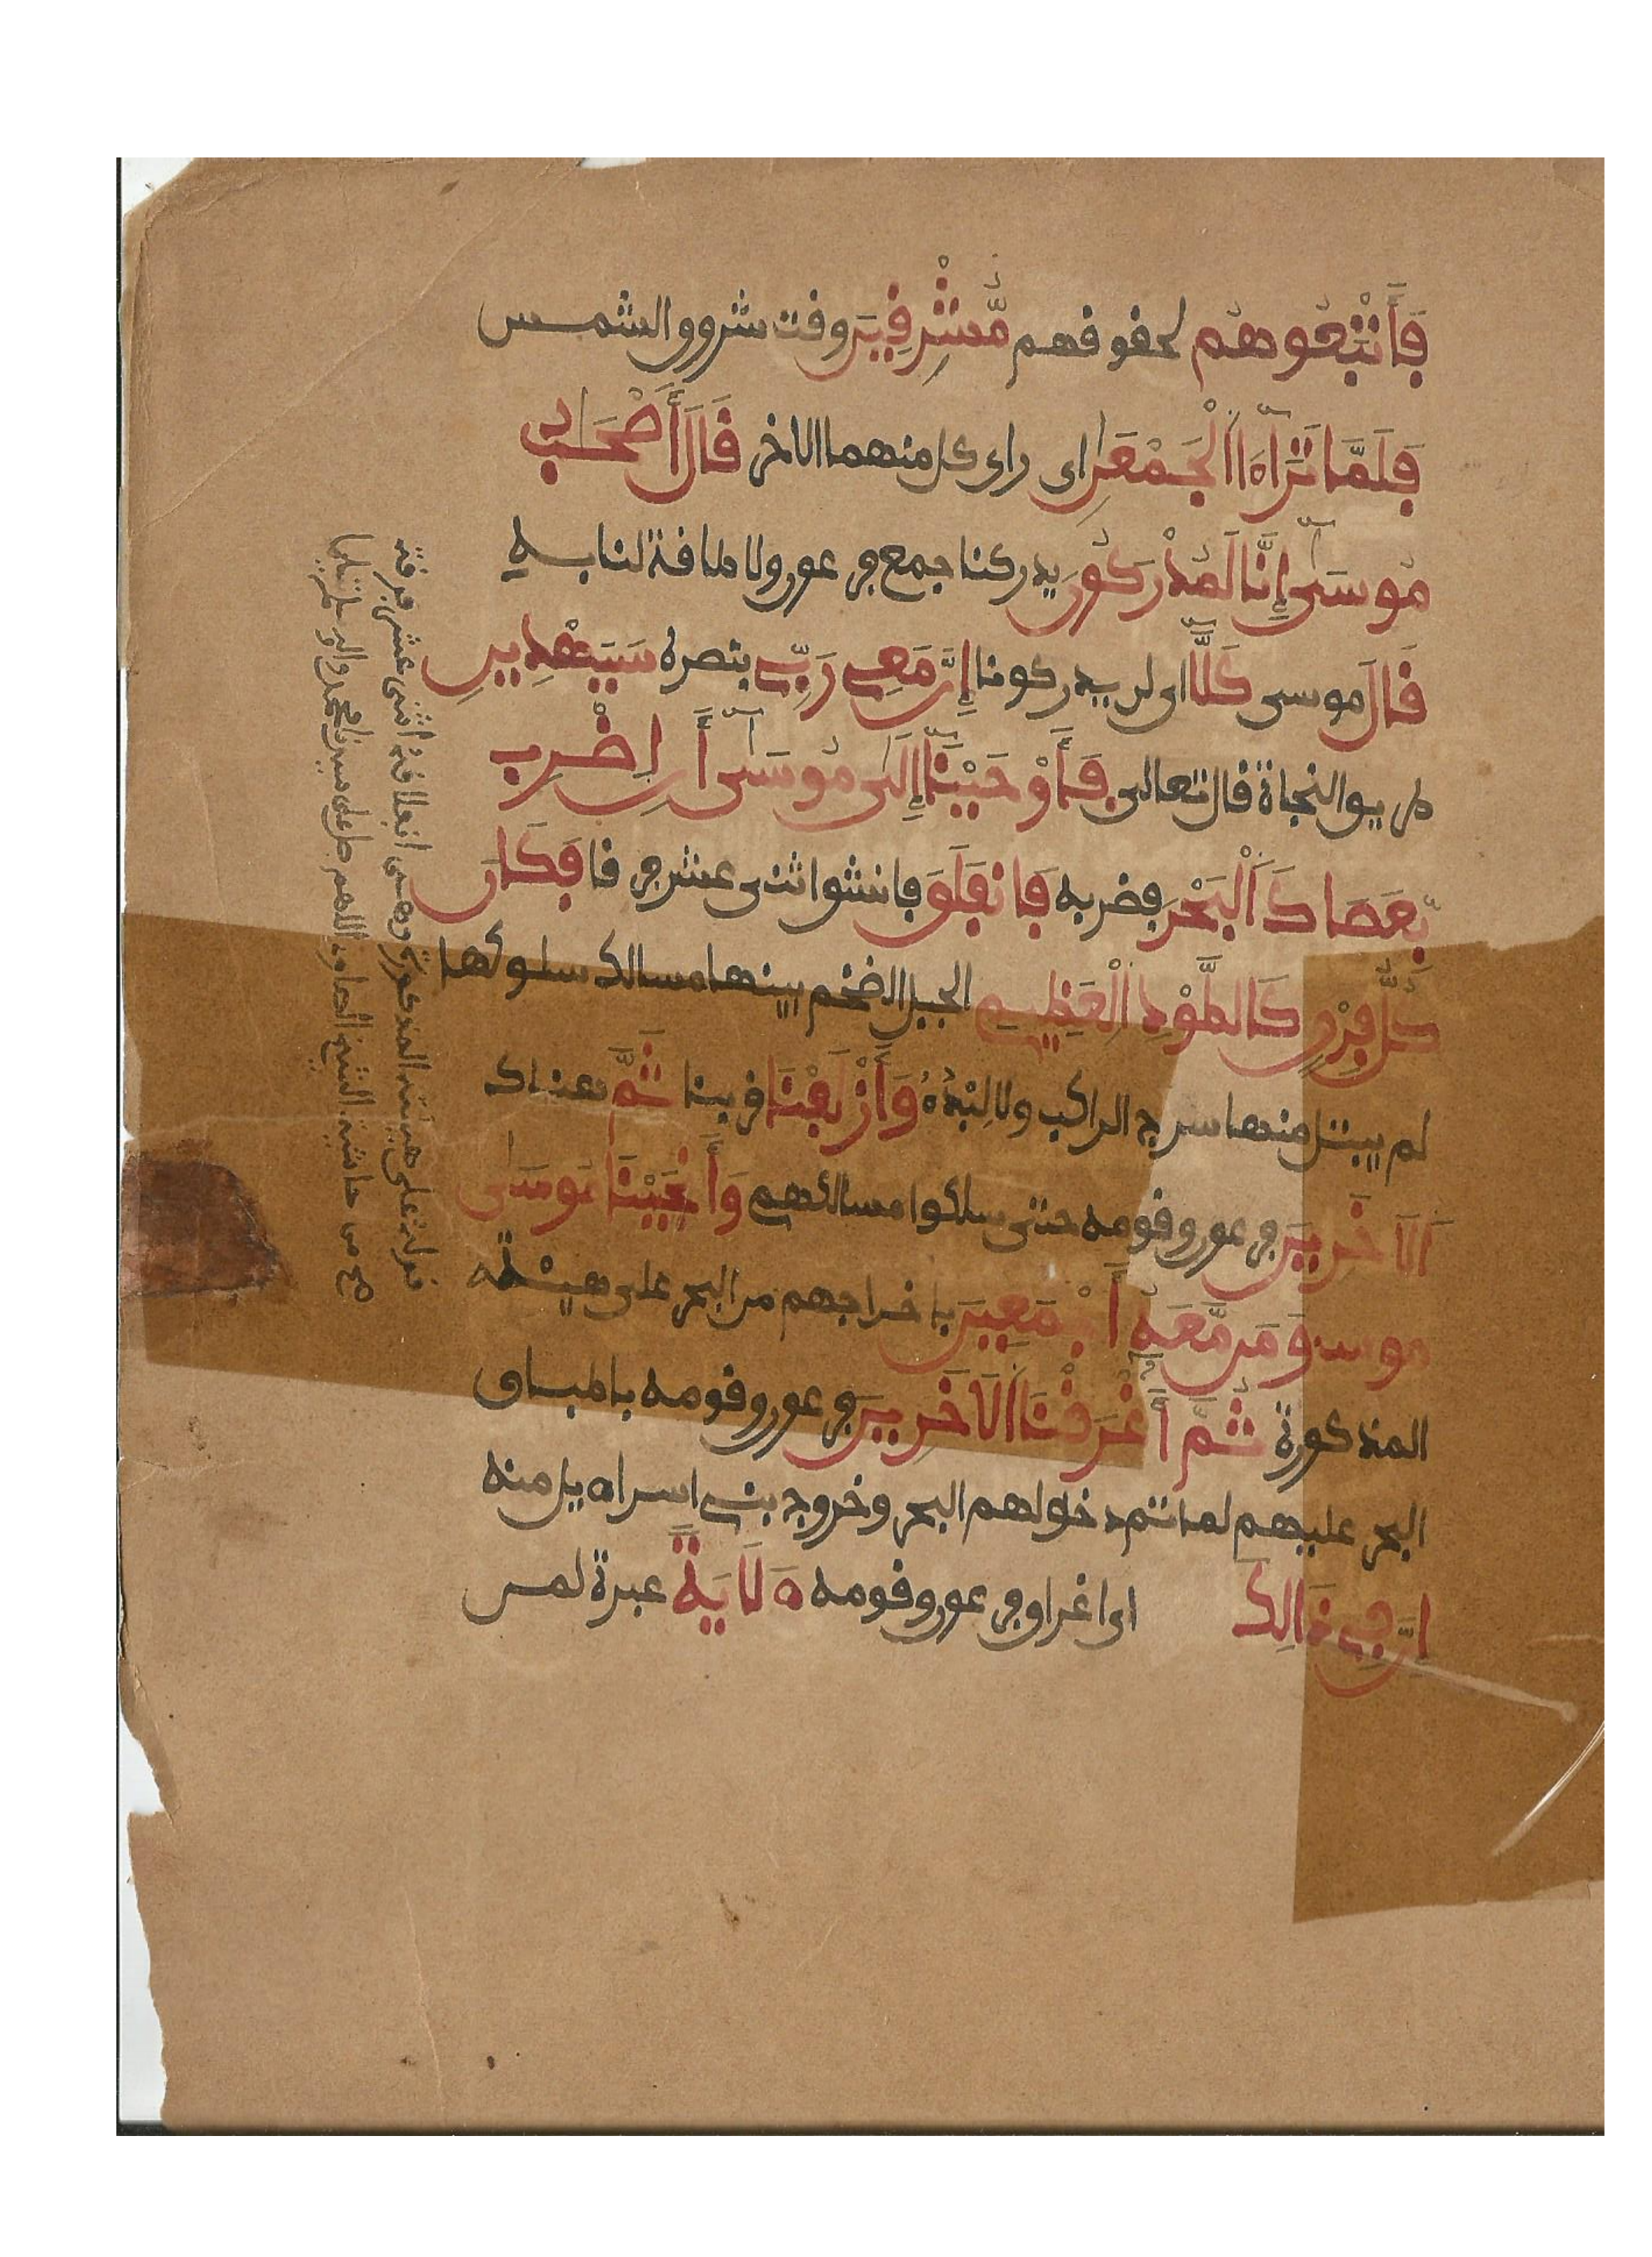 فَأَتْبَعُوهُم لحقوهم مُّشْرِفِينَ وقت شروق الشمس
فَلَمَّا تَرَآءَا اَلْجَمْعَٰنِ اى راى كل منهما الاخر قَالَ أَصْحَٰبُ
مُوسَىٰٓ إِنَّا لَمُدْرَكُونَ يدركنا جمع فرعون ولا طاقة لنا به
قَالَ موسى كَلَّآ اى لن يدركونا إِنَّ مَعِے رَبِّے بنصره سَيَهْدِينِ
طريق النجاة قال تعالى فَأَوْحَيْنَآ إِلَىٰ مُوسَىٰٓ أَنِ اِضْرِب
بِّعَصَاكَ اَلْبَحْرَ فضربه فَانفَلَقَ فانشق اثنى عشر فرقا فَكَانَ
كُلُّ فِرْقٍ كَالطَّوْدِ اِلْعَظِيمِ الجبل الضخم بينها مسالك سلوكها
لم يبتل منها سرج الراكب ولا لِبْدُهُ وَأَزْلَفْنَا قربنا ثَمَّ هناك
اَلَاخَرِينَ فرعون وقومه حتى سلكوا مسالكهم وَأَنجَيْنَا مُوسَىٰ
موسى وَمَن مَّعَهُۥٓ أَجْمَعِينَ باخراجهم من البحر على هيئته
المذكورة ثُمَّ أَغْرَقْنَا اَلَاخَرِينَ فرعون وقومه باطباق
البحر عليهم لما تم دخولهم البحر وخروج بنے اسراءيل منه
اِنَّ فِے ذَٰلِكَ اى اغراق فرعون وقومه ءَلَايَةً عبرة لمن
قوله على هيئته المذكورة وهى انفلاقه اثنى عشر فرقة
صح من حاشية الشيخ الصاوى اللهم صل على سيدنا محمد واله وسلم تسليما